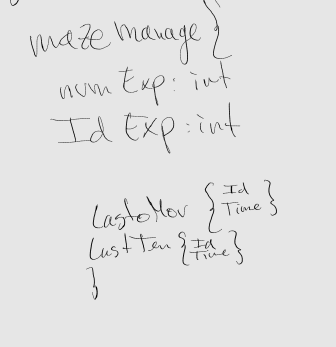 maze manage {
num Exp: int
Id Exp: int
LastoMov { Id
Time }
LastTen { Id
Time }
}